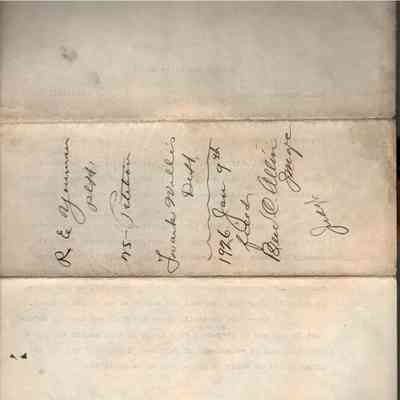 R E Youman
Plff,
vs- Petition
Frank Willis
Deft
1926 Jan 9th
filed,
Ben C. Allin
Judge